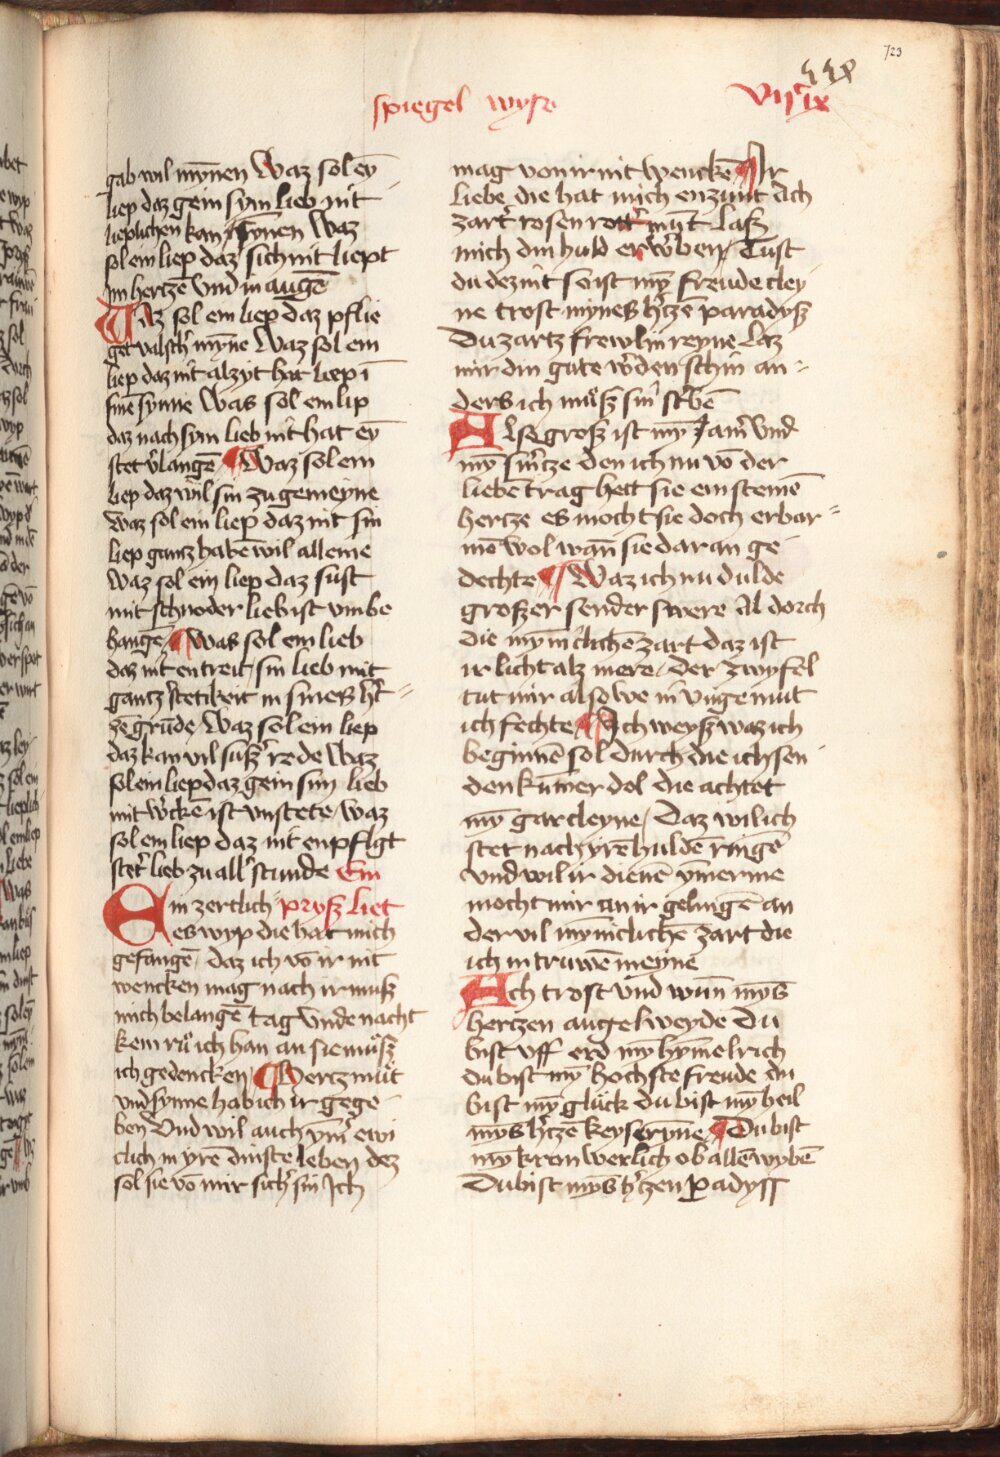 723
spiegel wyse
viic ix
gab wil mÿnen Waz sol eÿ
liep daz gein sym lieb nit
lieplichen kan synen Waz
sol ein liep daz sich nit liept
im hertzē Vnd in augē
Waz sol ein liep daz pflie
get valsch' mȳne Waz sol ein
liep daz nit alzyt hat liep ī
sinē synne Was sol ein lip
daz nach sym lieb nit hat eȳ
stet v'langē ¶ Waz sol ein
liep daz wil sin zu gemeyne
Waz sol ein liep daz nit sin
liep gantz habē wil alleine
Waz sol ein liep daz süst
mit schnoder lieb ist vmbe
hangē ¶ Was sol ein lieb
daz nit entreit sin lieb mit
gantz' stetikeit in sines h't
zē grūde Waz sol ein liep
daz kan vil susz' rede Waz
sol ein liep daz gein sim lieb
mit w'ckē ist vnstete Waz
sol ein liep daz nit enpfligt
stet' lieb zu all' stunde Ein
Ein zertlich prysz liet
es wyp die hat mich
gefangē daz ich vō ir nit
wencken mag nach ir musz
mich belangē tag vnde nacht
kein rů ich han an sie můsz
ich gedencken ¶ Hertz můt
vnd synne hab ich ir gege
ben Vnd wil auch ȳm' ewi
clich in yre dinste leben dez
sol sie vō mir sich' sin Ich
mag von ir nit wenckē ¶ Ir
liebe die hat mich enzünt Ach
zart' rosen rott' münt Lasz
mich din huld erw'ben Tüst
du dez nit so ist mȳ freude cley
ne trost mynes h'tzē paradysz
Du zartz frewlin reyne Laz
mir din gute w'den schin an
ders ich můsz sin' st'bē
Also grosz ist mȳ Jam' vnd
mȳ sm'tze den ich nu vō der
liebē trag hett sie ein steinē
hertze es mocht sie doch erbar
mē wol wān sie dar an ge
dechte ¶ Waz ich nu dulde
groszer sender swere Al dorch
die mȳniclichē zart daz ist
ir licht alz mere Der zwyfel
tut mir also we in vngemut
ich fechte ¶ Ich weysz waz ich
beginnē sol Durch die ich sen
den kūmer dol die achtet
mȳ gar cleyne Daz wil ich
stet nach yrē huldē ringē
vnd wil ir dienē ȳmerme
mocht mir an ir gelingē an
der vil mȳniclichē zart die
ich in truwē meyne
Ach trost vnd wūn mȳs
hertzen augel weyde Du
bist vff erd mȳ hȳmelrich
du bist mȳ hochste freude du
bist mȳ glück du bist mȳ heil
mȳs h'tzē keyserȳne ¶ Du bist
mȳ kron werlich ob allē wybē
Du bist mȳs h'tzen padyss